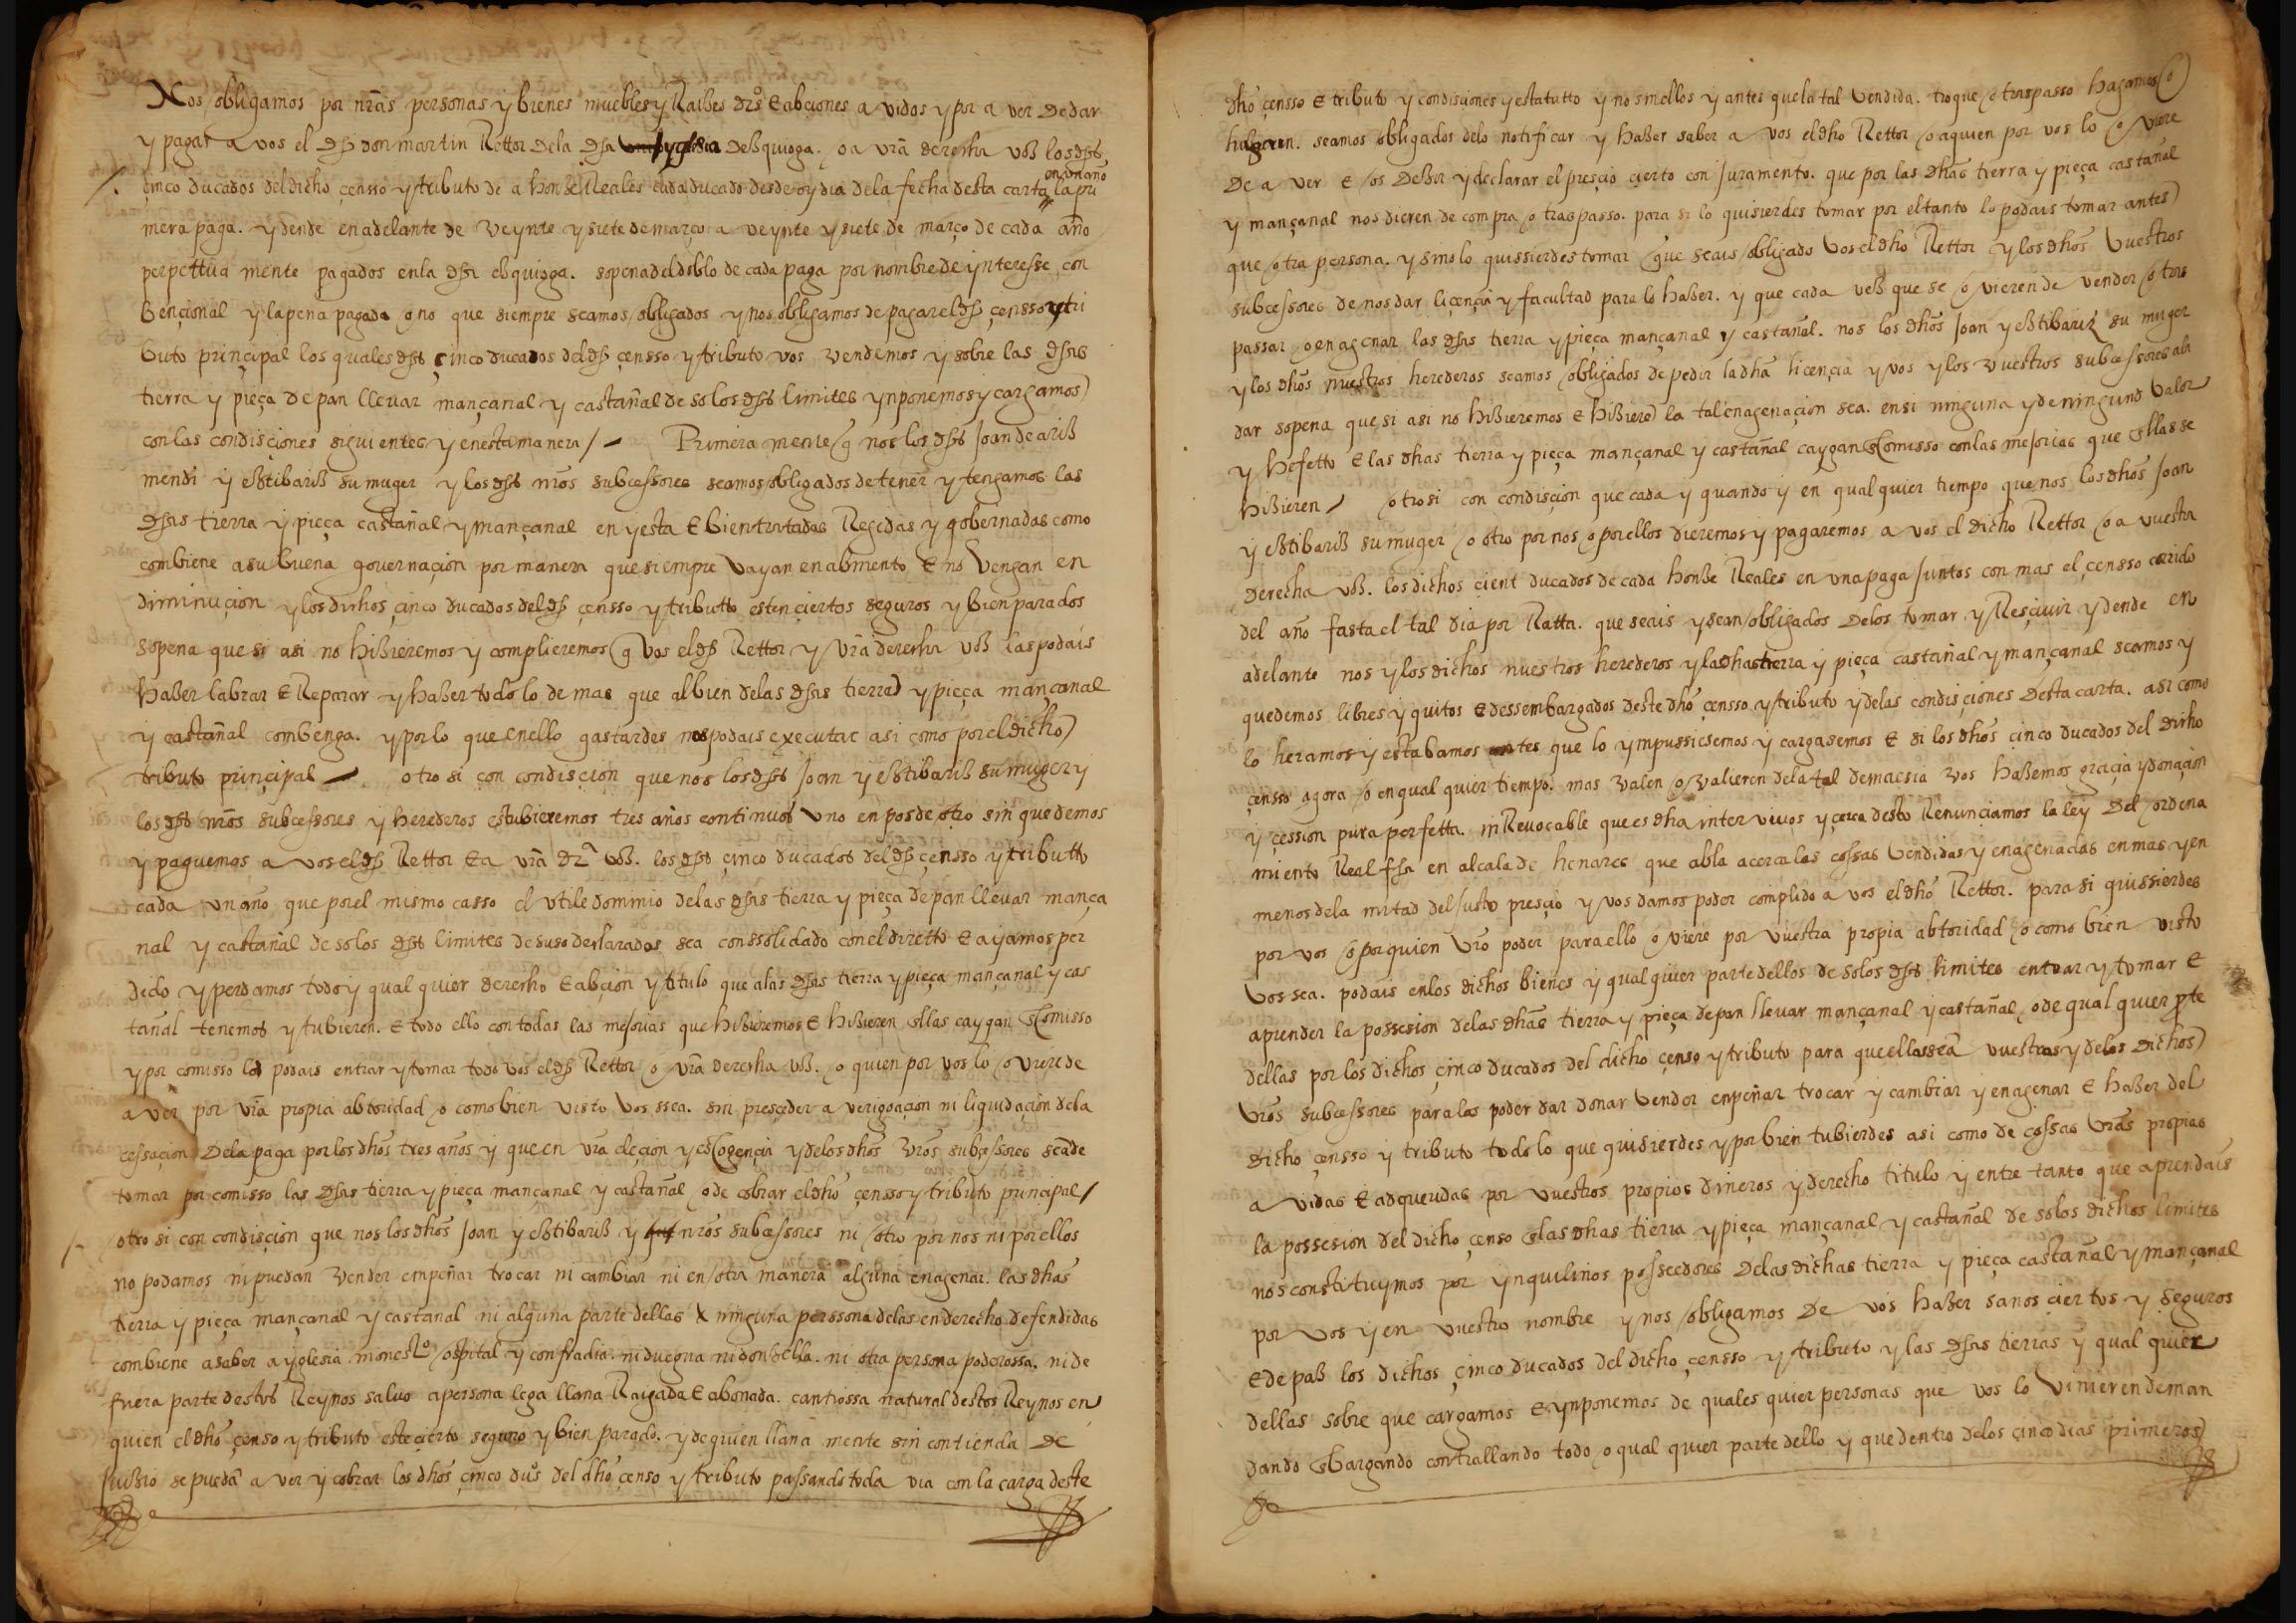 Nos obligamos por nrãs personas y bienes muebles y Raizes drõs E abçiones avidos y por aver de dar
y pagar a vos el dho don martin Rettor de la dha yglesia de Ezquioga. o a vrã derecha voz los dhos
çinco ducados del dicho çensso y tributo de a honze Reales cada ducado desde oy dia de la fecha desta carta en un año la pri
mera paga. y dende en adelante de veynte y siete de março a veynte y siete de março de cada año
perpettua mente pagados en la dha ezquioga. so pena del doblo de cada paga por nombre de ynteresse con
bençional y la pena pagada o no que siempre seamos obligados y nos obligamos de pagar el dho çensso y tri
buto prinçipal los quales dhos çinco ducados del dho çensso y tributo vos vendemos y sobre las dhas
tierra y pieça de pan llevar mançanal y castañal de so los dhos limites ynponemos y cargamos
con las condisçiones siguientes y en esta manera /- Primera mente q nos los dhos Joan de ariz
mendi y eztibariz su muger y los dhos nrõs subcessores seamos obligados de tener y tengamos las
dhas tierra y pieça castañal y mançanal en yesta E bien tratadas Regidas y gobernadas como
combiene a su buena governaçion por manera que siempre vayan en abmento E no vengan en
diminuçion y los dichos çinco ducados del dho çensso y tributto esten çiertos seguros y bien parados
so pena que si asi no hizieremos y complieremos q vos el dho Rettor y vrã derecha voz las podais
hazer labrar E Reparar y hazer todo lo de mas que al bien de las dhas tierra y pieça mançanal
y castañal combenga. y por lo que en ello gastardes nos podais executar asi como por el dicho
tributo prinçipal - otro si con condisçion que nos los dhos Joan y eztibariz su muger y
los dhos nrõs subcessores y herederos estubieremos tres años continuos uno en pos de otro sin que demos
y paguemos a vos el dho Rettor E a vrã dra voz. los dhos çinco ducados del dho çensso y tributto
cada un año que por el mismo casso el utile dominio de las dhas tierra y pieça de pan llevar mança
nal y castañal de so los dhos limites de suso declarados sea conssolidado con el diretto E ayamos per
dido y perdamos todo y qual quier derecho E abçion y titulo que a las dhas tierra y pieça mançanal y cas
tañal tenemos y tubieren. E todo ello con todas las mejorias que hizieremos E hizieren ellas caygan ē Comisso
y por comisso los podais entrar y tomar todo vos el dho Rettor o vrã derecha voz. o quien por vos lo oviere de
a ver por vrã propia abtoridad o como bien visto vos ssea. sin presçeder a verigoaçion ni liquidaçion de la
cessaçion de la paga por los dhõs tres años y que en vrã eleçion y escogençia y de los dhõs vrõs subcessores sea de
tomar por comisso las dhas tierra y pieça mançanal y castañal o de cobrar el dhõ çensso y tributo prinçipal /
otro si con condisçion que nos los dhõs Joan y eztibariz y nrõs subcessores ni otro por nos ni por ellos
no podamos ni puedan vender empeñar trocar ni cambiar ni en otra manera alguna enagenar. las dhas
tierra y pieça mançanal y castañal ni alguna parte dellas a ninguna perssona de las en derecho defendidas
combiene a saber a yglesia. monestº ospital y confradia. ni duegna ni donzella. ni otra persona poderossa. ni de
fuera parte destos Reynos salvo a persona lega llana Raigada E abonada. cantiossa natural destos Reynos en
quien el dhõ çenso y tributo este çierto seguro y bien parado. y de quien llana mente sin contienda de
juizio se pueda a ver y cobrar los dhõs çinco duºs del dhõ çenso y tributo passando toda via con la carga deste
dhõ çensso E tributo y condisçiones y estatutto y no sin ellos y antes que la tal vendida. troque o traspasso hagamos o
hagan. seamos obligados de lo notificar y hazer saber a vos el dho Rettor o a quien por vos lo o viere
de a ver E os dezir y declarar el presçio çierto con juramento. que por las dhas tierra y pieça castañal
y mançanal nos dieren de compra o traspasso. para si lo quisierdes tomar por el tanto lo podais tomar antes
que otra persona. y si no lo quissierdes tomar que seais obligado vos el dho Rettor y los dhõs vuestros
subcessores de nos dar liçençia y facultad para lo hazer. y que cada vez que se o vieren de vender o tras
passar o enagenar las dhas tierra y pieça mançanal y castañal. nos los dhõs Joan y eztibariz su muger
y los dhõs nuestros herederos seamos obligados de pedir la dhã liçençia y vos y los vuestros subcessores a la
dar so pena que si asi no hizieremos E hiziere la tal enagenaçion sea. en si ninguna y de ningund valor
y hefetto E las dhas tierra y pieça mançanal y castañal caygan ē Comisso con las mejorias que ellas se
hizieren / otro si con condisçion que cada y quando y en qual quier tiempo que nos los dhõs Joan
y eztibariz su muger o otro por nos o por ellos dieremos y pagaremos a vos el dicho Rettor o a vuestra
derecha voz. los dichos çient ducados de cada honze Reales en una paga juntos con mas el çensso corrido
del año fasta el tal dia por Ratta. que seais y sean obligados de los tomar y Resçivir y dende en
adelante nos y los dichos nuestros herederos y la dha tierra y pieça castañal y mançanal seamos y
quedemos libres y quitos E dessembargados deste dhõ çensso y tributo y de las condisçiones desta carta. asi como
lo heramos y estabamos antes que lo ympussiesemos y cargasemos E si los dhõs çinco ducados del dicho
çensso agora o en qual quier tiempo. mas valen o valieren de la tal demaesia vos hazemos graçia y donaçion
y çession pura perfetta. inRevocable que es dha inter vivos y çerca desto Renunçiamos la ley del ordena
miento Real fha en alcala de henares que abla açerca las cossas vendidas y enagenadas en mas y en
menos de la mitad del justo presçio y vos damos poder complido a vos el dhõ Rettor. para si quissierdes
por vos o por quien vrõ poder para ello o viere por vuestra propia abtoridad o como bien visto
vos sea. podais en los dichos bienes y qual quier parte dellos de so los dhos limites entrar y tomar E
aprender la possesion de las dhãs tierra y pieça de pan llevar mançanal y castañal o de qual quier pte
dellas por los dichos çinco ducados del dicho çenso y tributo para que ellas sean vuestras y de los dichos
vrõs subcessores para las poder dar donar vender enpeñar trocar y cambiar y enagenar E hazer del
dicho çensso y tributo todo lo que quisierdes y por bien tubierdes asi como de cossas vrãs propias
a vidas E adqueridas por vuestros propios dineros y derecho titulo y entre tanto que aprendais
la possesion del dicho çenso e las dhas tierra y pieça mançanal y castañal de so los dichos limites
nos constituymos por ynquilinos posseedores de las dichas tierra y pieça castañal y mançanal
por vos y en vuestro nombre y nos obligamos de vos hazer sanos çiertos y seguros
E de paz los dichos çinco ducados del dicho çensso y tributo y las dhas tierras y qual quier
dellas sobre que cargamos E ynponemos de quales quier personas que vos lo vinieren deman
dando enbargando contrallando todo o qual quier parte dello y que dentro de los çinco dias primeros